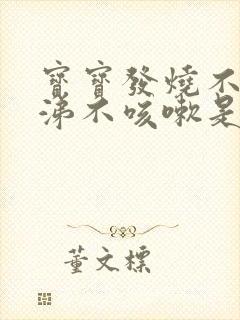 寶寶發燒不
涕不咳嗽是
董文標